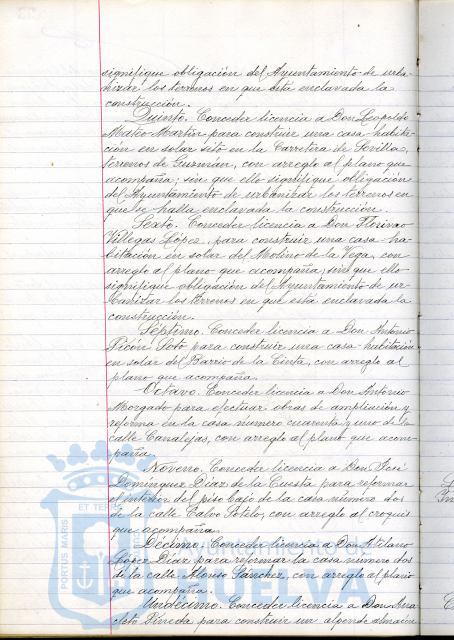 signifique obligación del Ayuntamiento de urba-
nizar los terrenos en que está enclavada la
construcción.
Quinto. Conceder licencia a Don Leopoldo
Mateo Martín para construir una casa habita-
ción en solar sito en la Carretera de Sevilla,
terrenos de Guzmán, con arreglo al plano que
acompaña; sin que ello signifique obligación
del Ayuntamiento de urbanizar los terrenos en
que se halla enclavada la construcción.
Sexto. Conceder licencia a Don Florivao
Villegas López, para construir una casa ha-
bitación en solar del Molino de la Vega, con
arreglo al plano que acompaña, sin que ello
signifique obligación del Ayuntamiento de ur-
banizar los terrenos en que está enclavada la
construcción.
Séptimo. Conceder licencia a Don Antonio
Picón Soto para construir una casa-habitación
en solar del Barrio de la Cinta, con arreglo al
plano que acompaña.
Octavo. Conceder licencia a Don Antonio
Morgado para efectuar obras de ampliación y
reforma en la casa número cuarenta y uno de la
calle Canalejas, con arreglo al plano que acom-
paña.
Noveno. Conceder licencia a Don José
Domínguez Díaz de la Cuesta para reformar
el interior del piso bajo de la casa número dos
de la calle Calvo Sotelo, con arreglo al croquis
que acompaña.
Décimo. Conceder licencia a Don
López Díaz para reformar la casa número dos
de la calle Alonso Sánchez, con arreglo al plano
que acompaña.
Undécimo. Conceder licencia a Don Ana-
cleto Pineda para construir un alpende almacén
PORTUS MARIS ET TERRAE
Ayuntamiento de
HUELVA